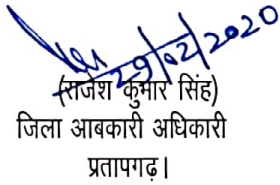 29/02/2020
(राजेश कुमार सिंह)
जिला आबकारी अधिकारी
प्रतापगढ़।